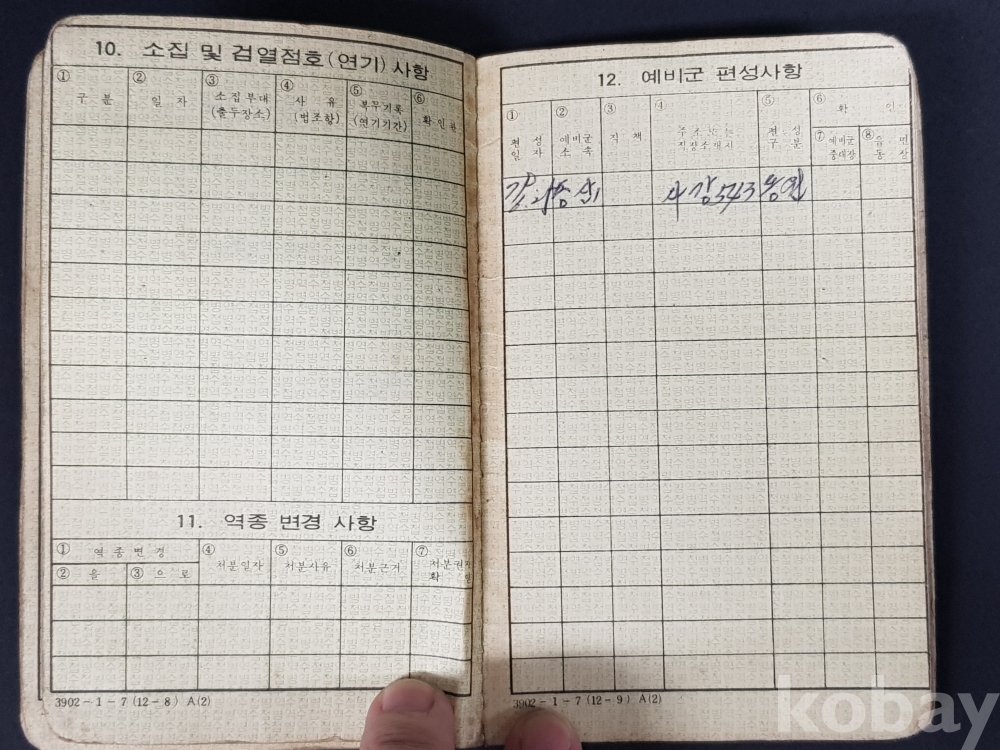 10. 소집 및 검열점호(연기) 사항
① 구분 ② 일자 ③ 소집부대 (출두장소) ④ 사유 (법조항) ⑤ 복무기록 (연기기간) ⑥ 확인관
11. 역종 변경 사항
① 역종변경 ④ 처분일자 ⑤ 처분사유 ⑥ 처분근거 ⑦ 처분권자 확인
② 을 ③ 으로
3902-1-7(12-8) A(2)
12. 예비군 편성사항
① 편성일자 ② 예비군소속 ③ 직책 ④ 주소 또는 직장소재지 ⑤ 편성구분 ⑥ 확인
⑦ 예비군중대장 ⑧ 읍면동
543 동원
3902-1-7(12-9) A(2)
kobay